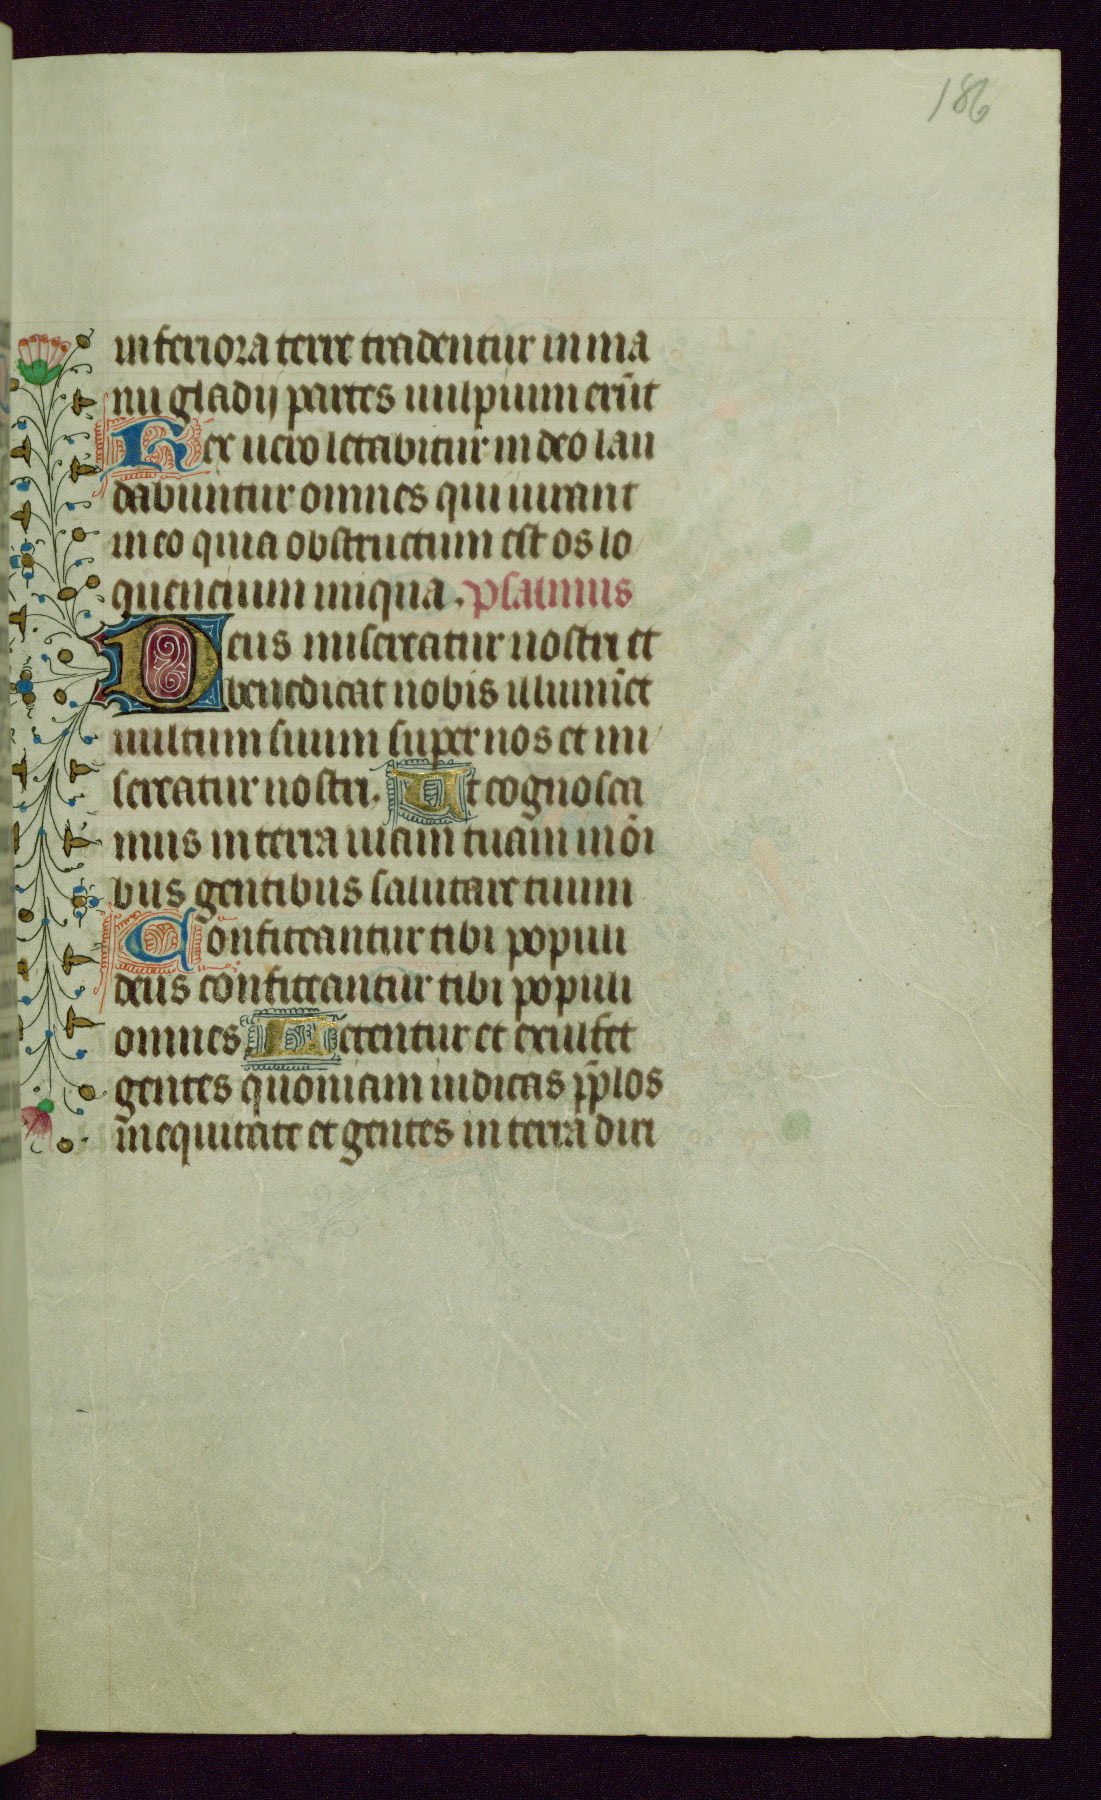 186
inferiora terre tradentur in ma
nu gladij partes uulpium erūt
Rex uero letabitur in deo lau
dabuntur omnes qui iurant
in eo quia obstructum est os lo
quencium iniqua. psalmus
Deus misereatur nostri et
benedicat nobis illumīet
uultum suum super nos et mi
sereatur nostri. Ut cognosca
mus in terra uiam tuam in oī
bus gentibus salutare tuum
Confiteantur tibi populi
deus confiteantur tibi populi
omnes Letentur et exultēt
gentes quoniam iudicas pp̄los
in equitate et gentes in terra diri